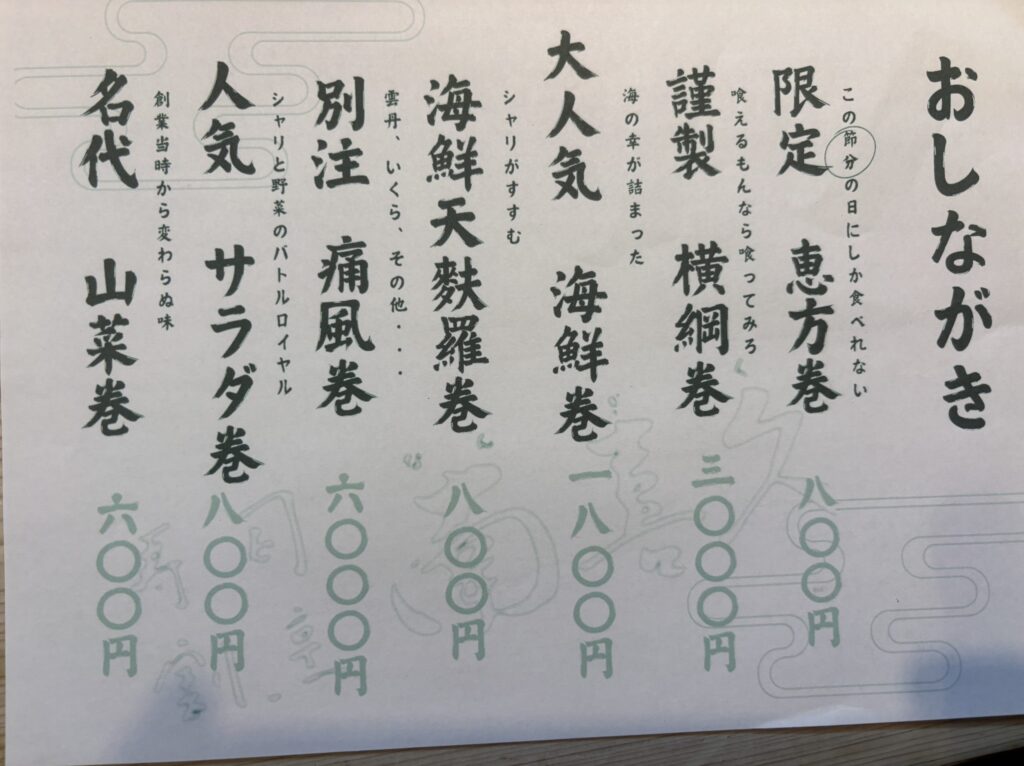 おしながき
この節分の日にしか食べれない
限定 恵方巻 八〇〇円
喰えるもんなら喰ってみろ
謹製 横綱巻 三〇〇〇円
海の幸が詰まった
大人気 海鮮巻 一八〇〇円
シャリがすすむ
海鮮天麩羅巻 八〇〇円
雲丹、いくら、その他・・・
別注 痛風巻 六〇〇〇円
シャリと野菜のバトルロイヤル
人気 サラダ巻 八〇〇円
創業当時から変わらぬ味
名代 山菜巻 六〇〇円